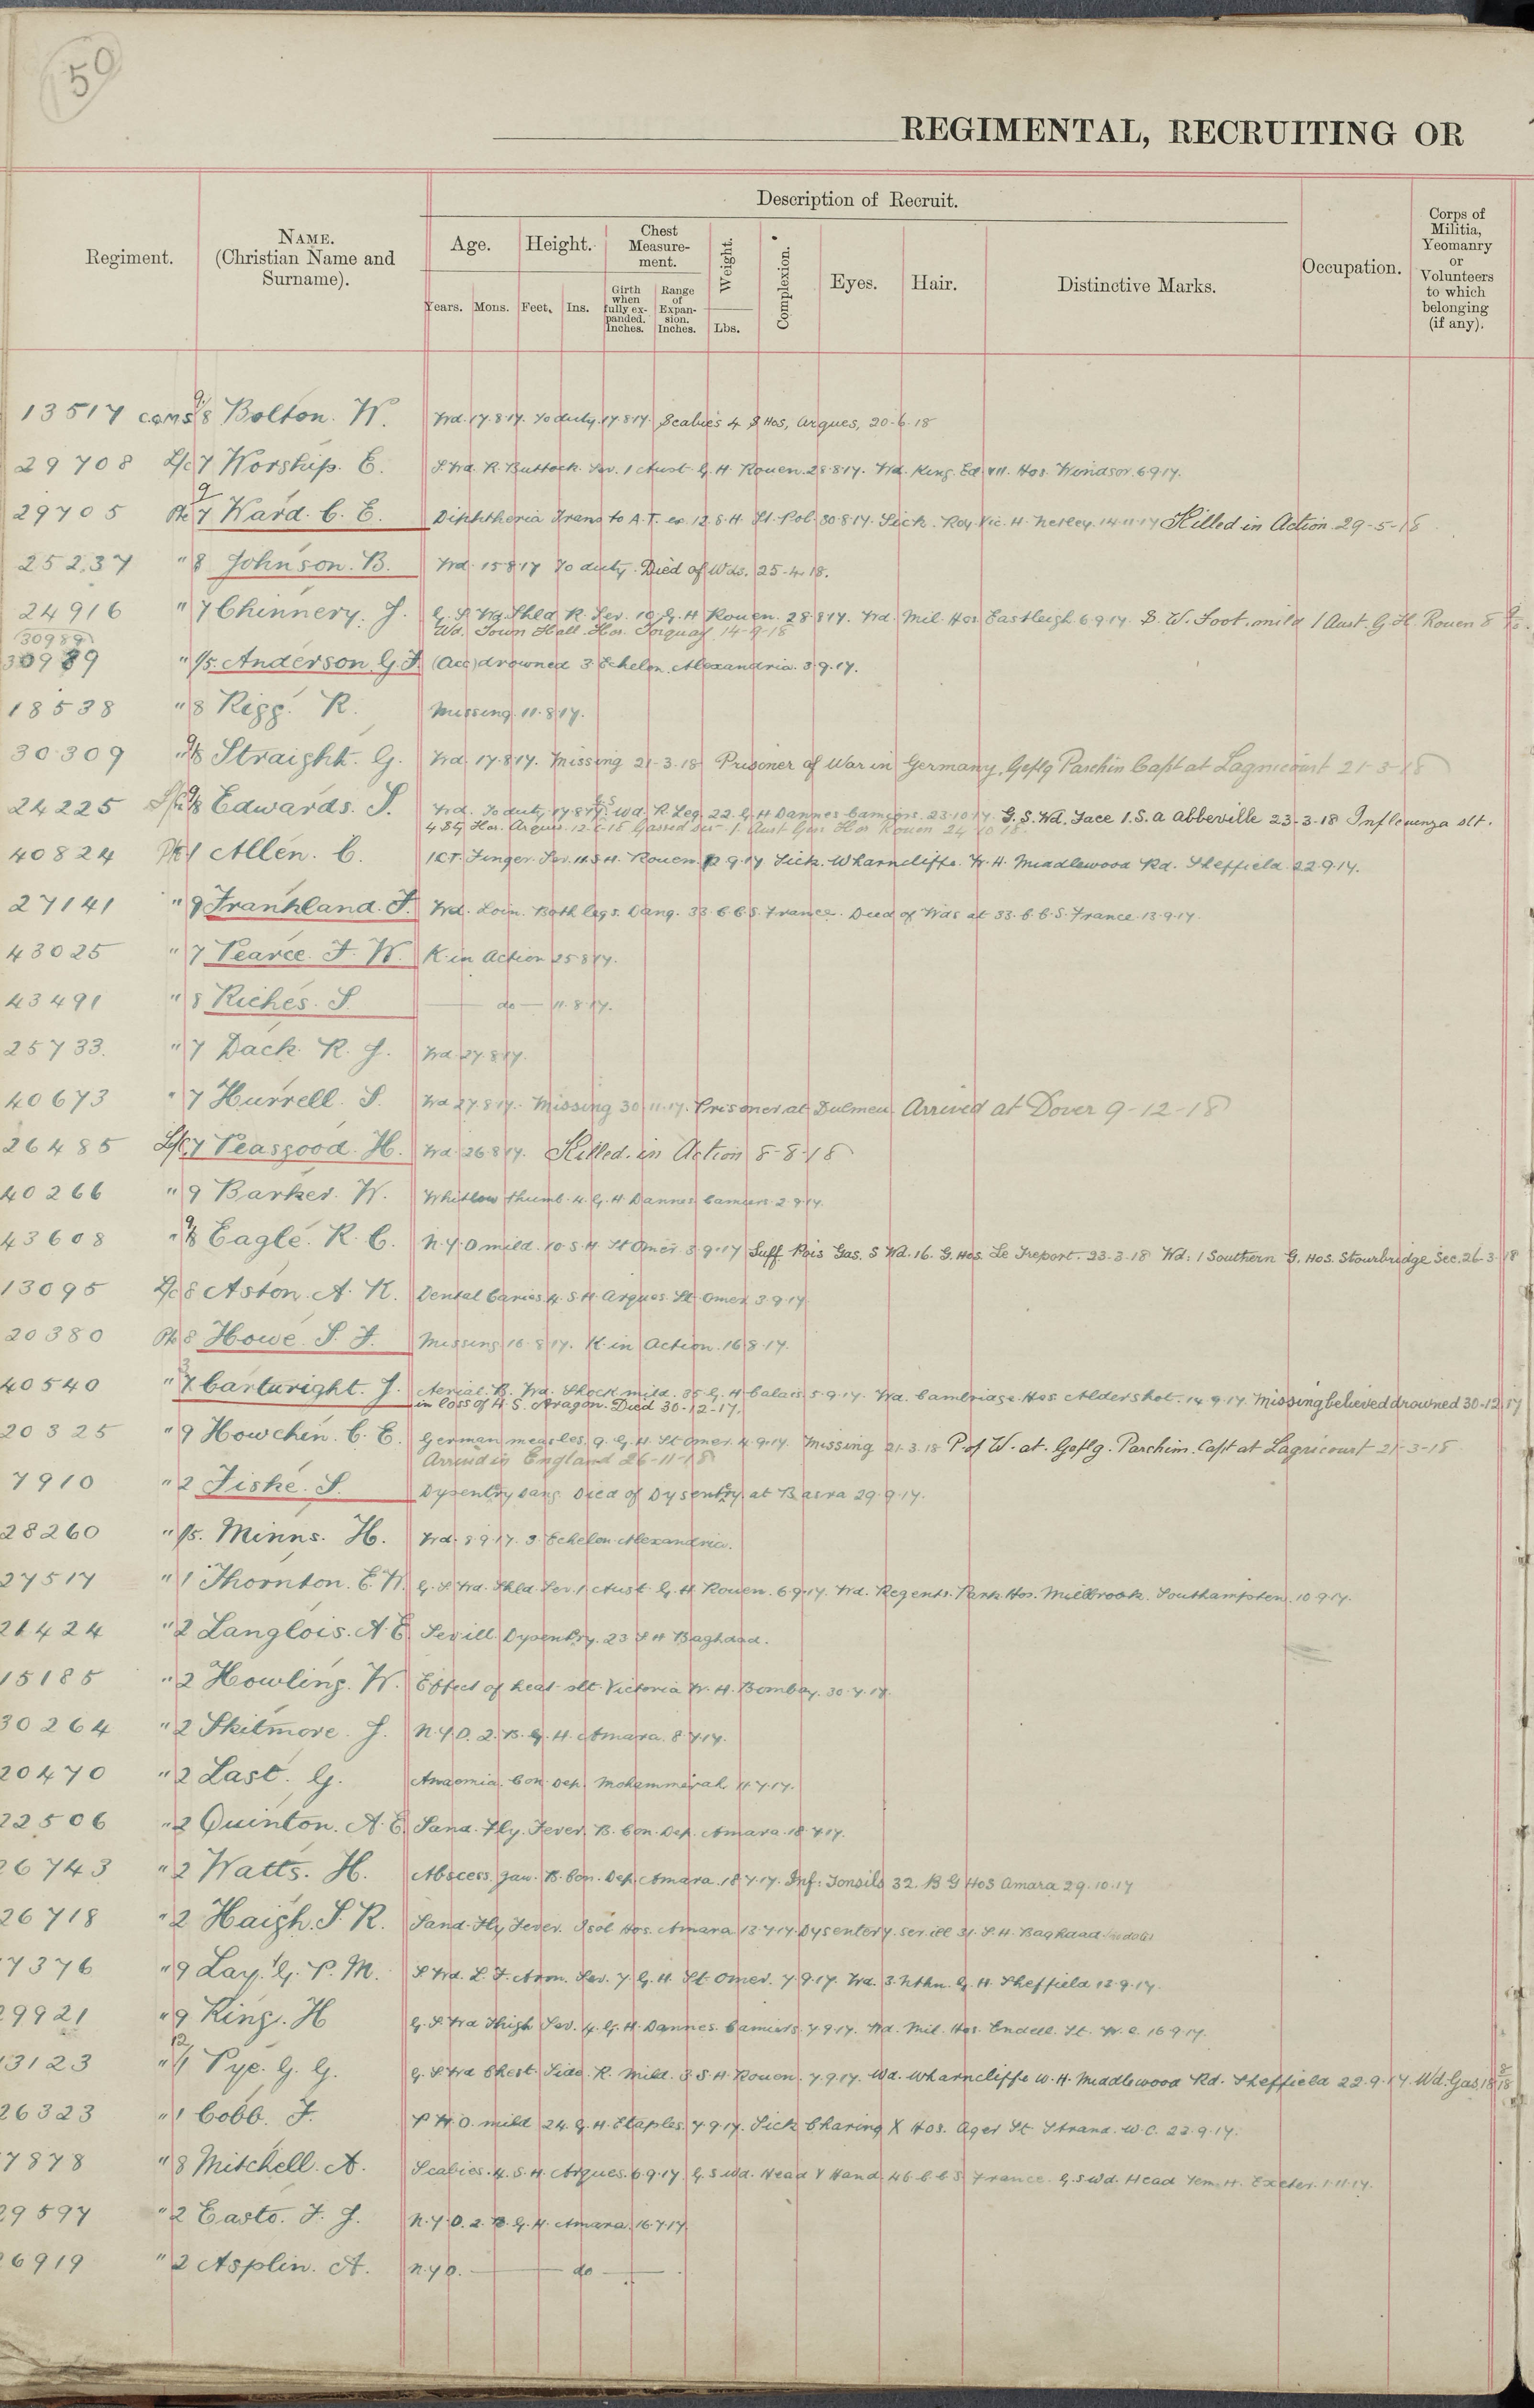 50
REGIMENTAL, RECRUITING OR
Description of Recruit.
Regiment.
NAME.
(Christian Name and
Surname).
Age.
Height.
Chest
Measure-
ment.
Weight.
Complexion.
Eyes.
Hair.
Distinctive Marks.
Occupation.
Corps of
Militia,
Yeomanry
or
Volunteers
to which
belonging
(if any).
Years.
Mons.
Feet.
Ins.
Girth
when
fully ex-
panded.
Inches.
Range
of
Expan-
sion.
Inches.
Lbs.
13517 CQMS 9/8 Bolton. W. Wd. 17.8.17. To duty. 17.8.17. Scabies 4 S Hos, Arques, 20.6.18
29708 L/c 7 Worship. E. S. Wd. R. Buttock. Sev. 1 Aust. G. H. Rouen. 28.8.17. Wd. King. Ed. VII. Hos. Windsor. 6.9.17.
29705 Pte 9 7 Ward. C. E. Diphtheria Trans to A.T. ex. 12. S. H. St. Pol. 30.8.17. Sick. Roy. Vic. H. Netley. 14.11.17 Killed in Action. 29-5-18
25237 " 8 Johnson. B. Wd. 15.8.17 To duty. Died of Wds. 25-4-18.
24916 " 7 Chinnery. J. G. S. Wd. Shld. R. Sev. 10. G. H Rouen. 28.8.17. Wd. Mil. Hos Eastleigh. 6.9.17. S. W. Foot. mild 1 Aust. G. H. Rouen 8 9/18.
Wd. Town Hall. Hos. Torquay. 14-9-18
30989
30989 " 1/5. Anderson. G. F. (Acc) drowned 3 Echelon. Alexandria. 3.9.17.
18538 " 8 Rigg. R. Missing. 11.8.17.
30309 " 9/8 Straight. G. Wd. 17.8.17. Missing 21-3-18 Prisoner of War in Germany. Geflg Parchim Capt at Lagnicourt 21-3-18
24225 9/8 Edwards. S. Wd. To duty 17.8.17. G.S. Wd. R. Leg. 22. G. H Dannes-Camiers. 23.10.17. G. S. Wd. Face 1. S. A Abbeville 23-3-18 Influenza slt.
4 Stg Hos. Arques. 12-6-18 Gassed sev. 1. Aust Gen Hos Rouen 24 10 18
40824 Pte 1 Allen. C. ICT. Finger. Sev. 11. S. H. Rouen. 12 9.17 Sick. Wharncliffe. W. H. Middlewood Rd. Sheffield. 22.9.17.
27141 " 9 Frankland. F. Wd. Loin. Both legs. Dang. 33. C. C. S. France. Died of Wds at 33. C. C. S. France 13.9.17.
43025 " 7 Pearce. F. W. K. in Action 25.8.17.
43491 " 8 Riches. S. — do — 11.8.17.
25733. " 7 Dack. R. J. Wd. 27.8.17.
40673 " 7 Hurrell. S. Wd 27.8.17. Missing 30.11.17. Prisoner at Dulmen Arrived at Dover 9-12-18
26485 L/c 7 Peasgood. H. Wd. 26.8.17. Killed in Action 8-8-18
40266 " 9 Barker. W. Whitlow thumb. 4. G. H Dannes Camiers 2.9.17.
43608 " 9/8 Eagle. R. C. N. Y. D mild. 10. S. H St Omer. 3.9.17 Suff. Pois Gas. S Wd. 16. G. Hos. Le Treport. 23.3.18 Wd: 1 Southern G. Hos. Stourbridge Sec. 26.3.18
13095 L/c 8 Aston. A. K. Dental Caries. 4. S H Arques. St Omer 3.9.17
20380 Pte 8 Howe. S. F. Missing 16.8.17. K. in Action. 16.8.17.
40540 " 7 Cartwright. J. Aerial. B. Wd. Shock mild. 35 G. H Calais. 5.9.17. Wd. Cambridge. Hos. Aldershot. 14.9.17. Missing believed drowned 30.12.17
in loss of H. S. Aragon. Died 30-12-17.
20325 " 9 Howchin. C. E. German measles. 9. G. H. St Omer. 4.9.17. Missing 21.3.18 P. of W. at. Geflg. Parchim. Capt at Lagnicourt 21-3-18
Arrived in England 26-11-18
7910 " 2 Fiske. S. Dysentry Dang. Died of Dysentry. at Basra 29.9.17.
28260 " 1/5. Minns. H. Wd. 8.9.17. 3 Echelon Alexandria.
27517 " 1 Thornton. E. W. G. S. Wd. Shld Sev. 1 Aust. G. H Rouen. 6.9.17. Wd. Regents. Park. Hos. Millbrook. Southampton. 10.9.17.
21424 " 2 Langlois. A. E. Sev ill Dysentry. 23 S H Baghdad.
15185 " 2 Howling. W. Effect of heat slt. Victoria W. H. Bombay. 30.7.17.
30264 " 2 Skitmore. J. N. Y. D. 2. B. G. H. Amara. 8.7.17.
20470 " 2 Last. G. Anaemia. Con. Dep. Mohammerah. 11.7.17.
22506 " 2 Quinton. A. E. Sand. Fly. Fever. B. Con. Dep. Amara. 18.7.17.
26743 " 2 Watts. H. Abscess. Jaw. B. Con. Dep. Amara. 18.7.17. Inf: Tonsils 32. B G Hos Amara 29.10.17
26718 " 2 Haigh. S. R. Sand. Fly Fever. Isol Hos. Amara 13.7.17. Dysentery. ser. ill 31. S. H. Baghdad
7376 " 9 Lay. G. P. M. S. Wd. L. F. Arm. Sev. 7. G. H. St Omer. 7.9.17. Wd. 3. Nthn. G. H. Sheffield 13.9.17.
29921 " 9 King. H G. S. Wd Thigh Sev. 4. G. H. Dannes. Camiers. 7.9.17. Wd. Mil. Hos. Endell. St. W. C. 16.9.17.
13123 " 12/1 Pye. G. G. G. S. Wd Chest. Side. R. Mild. 3 S H. Rouen. 7.9.17. Wd. Wharncliffe W. H. Middlewood Rd. Sheffield 22.9.17. Wd. Gas.
26323 " 1 Cobb. F. P. U. O. mild 24. G. H. Etaples. 7.9.17. Sick Charing X Hos. Agar St Strand. W. C. 22.9.17.
7878 " 8 Mitchell. A. Scabies. 4. S. H. Arques. 6.9.17. G. S Wd. Head & Hand. 46 C C S France. G. S Wd. Head Tem. H. Exeter. 1.11.17.
29597 " 2 Easto. F. J. N. Y. D. 2. B. G. H. Amara. 16.7.17.
6919 " 2 Asplin. A. N. Y D. — do —